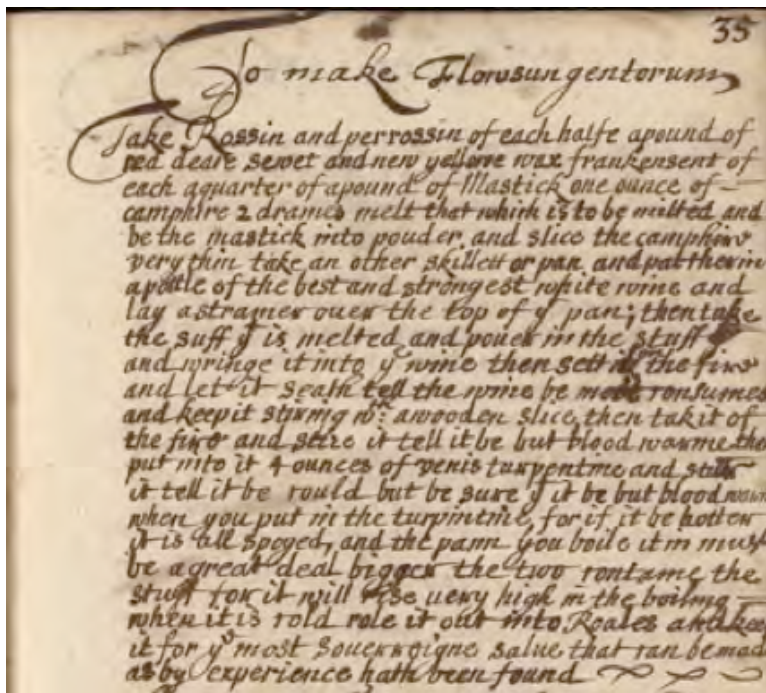 35
To make Flowsungentorum
Take Rossin and perrossin of each halfe a pound of
red deare sewet and new yellowe wax frankensent of
each a quarter of a pound of Mastick one ounce of
camphire 2 drames melt that which is to be milted and
be the mastick into pouder and slice the camphire
very thin take an other skillett or pan and put therin
a pottle of the best and strongest white wine and
lay a strainer ouer the top of yͤ pan; then take
the suff yͭ is melted and pouer in the stuff
and wringe it into yͤ wine then sett it on the fire
and let it seath tell the wine be most consumed
and keep it stiring wͭͪ a wooden slice then tak it of
the fire and stire it tell it be but blood warme the
put into it 4 ounces of venis turpentine and stirr
it tell it be could but be sure yͭ it be but blood warm
when you put in the turpintine, for if it be hotter
it is all spoyed, and the pann you boile it in must
be a great deal bigger the two contame the
stuff for it will rise uery high in the boiling
when it is cold role it out into Roales and keep
it for yͤ most souerroigne salue that can be mad
as by experience hath been found